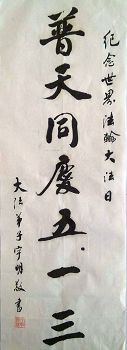 纪念世界法轮大法日
普天同庆五.一三
大法弟子宇明敬书